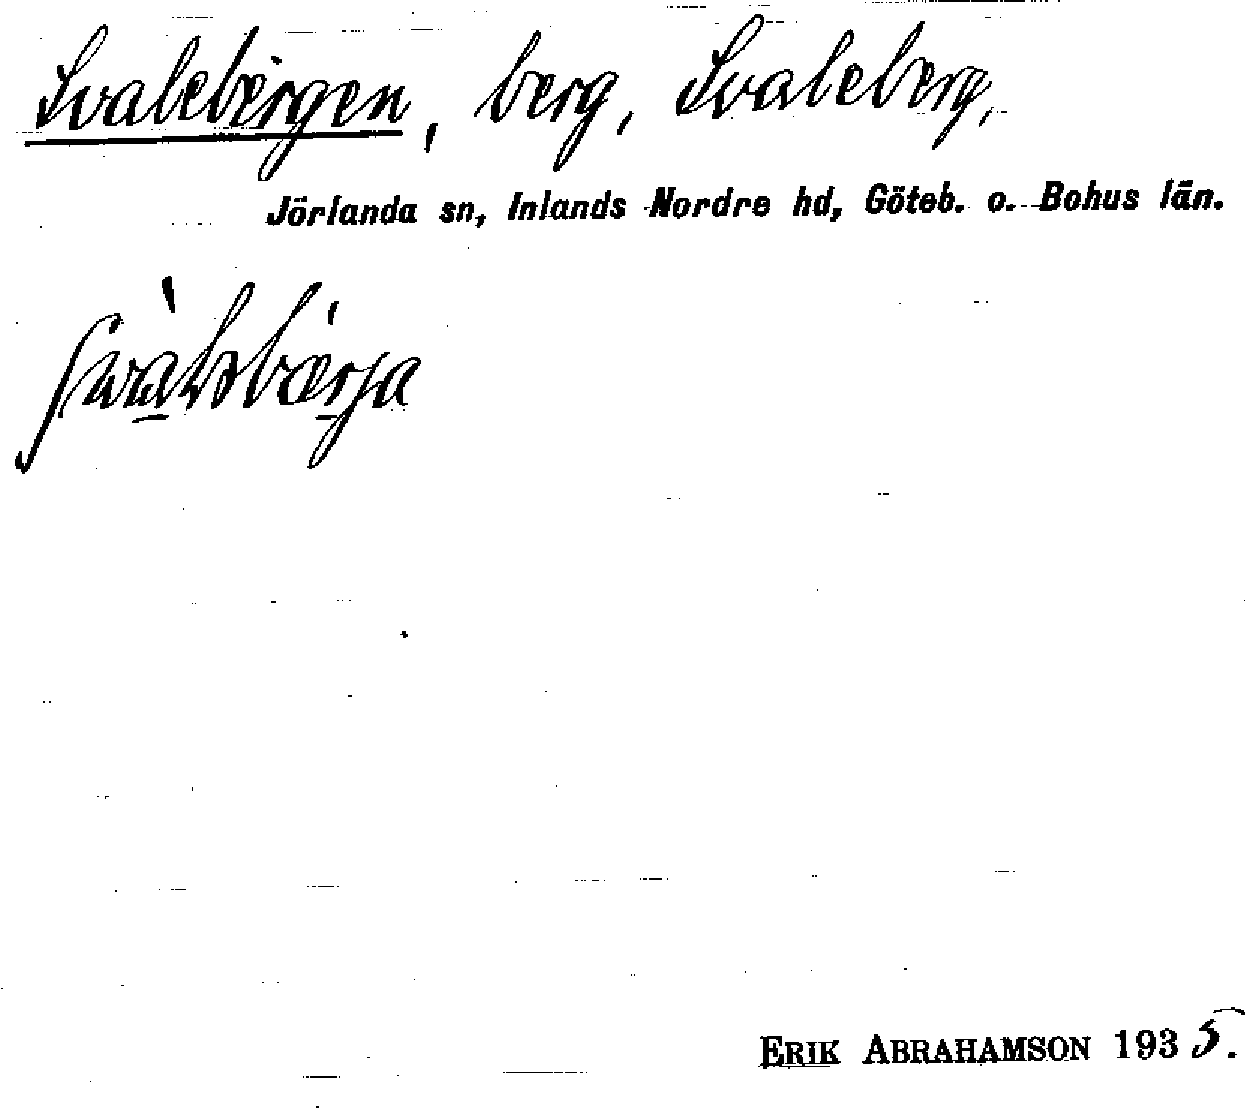 Svalebergen, berg, Svaleberg,
Jörlanda sn, Inlands Nordre hd, Göteb. o. Bohus län.
ERIK ABRAHAMSON 1935.